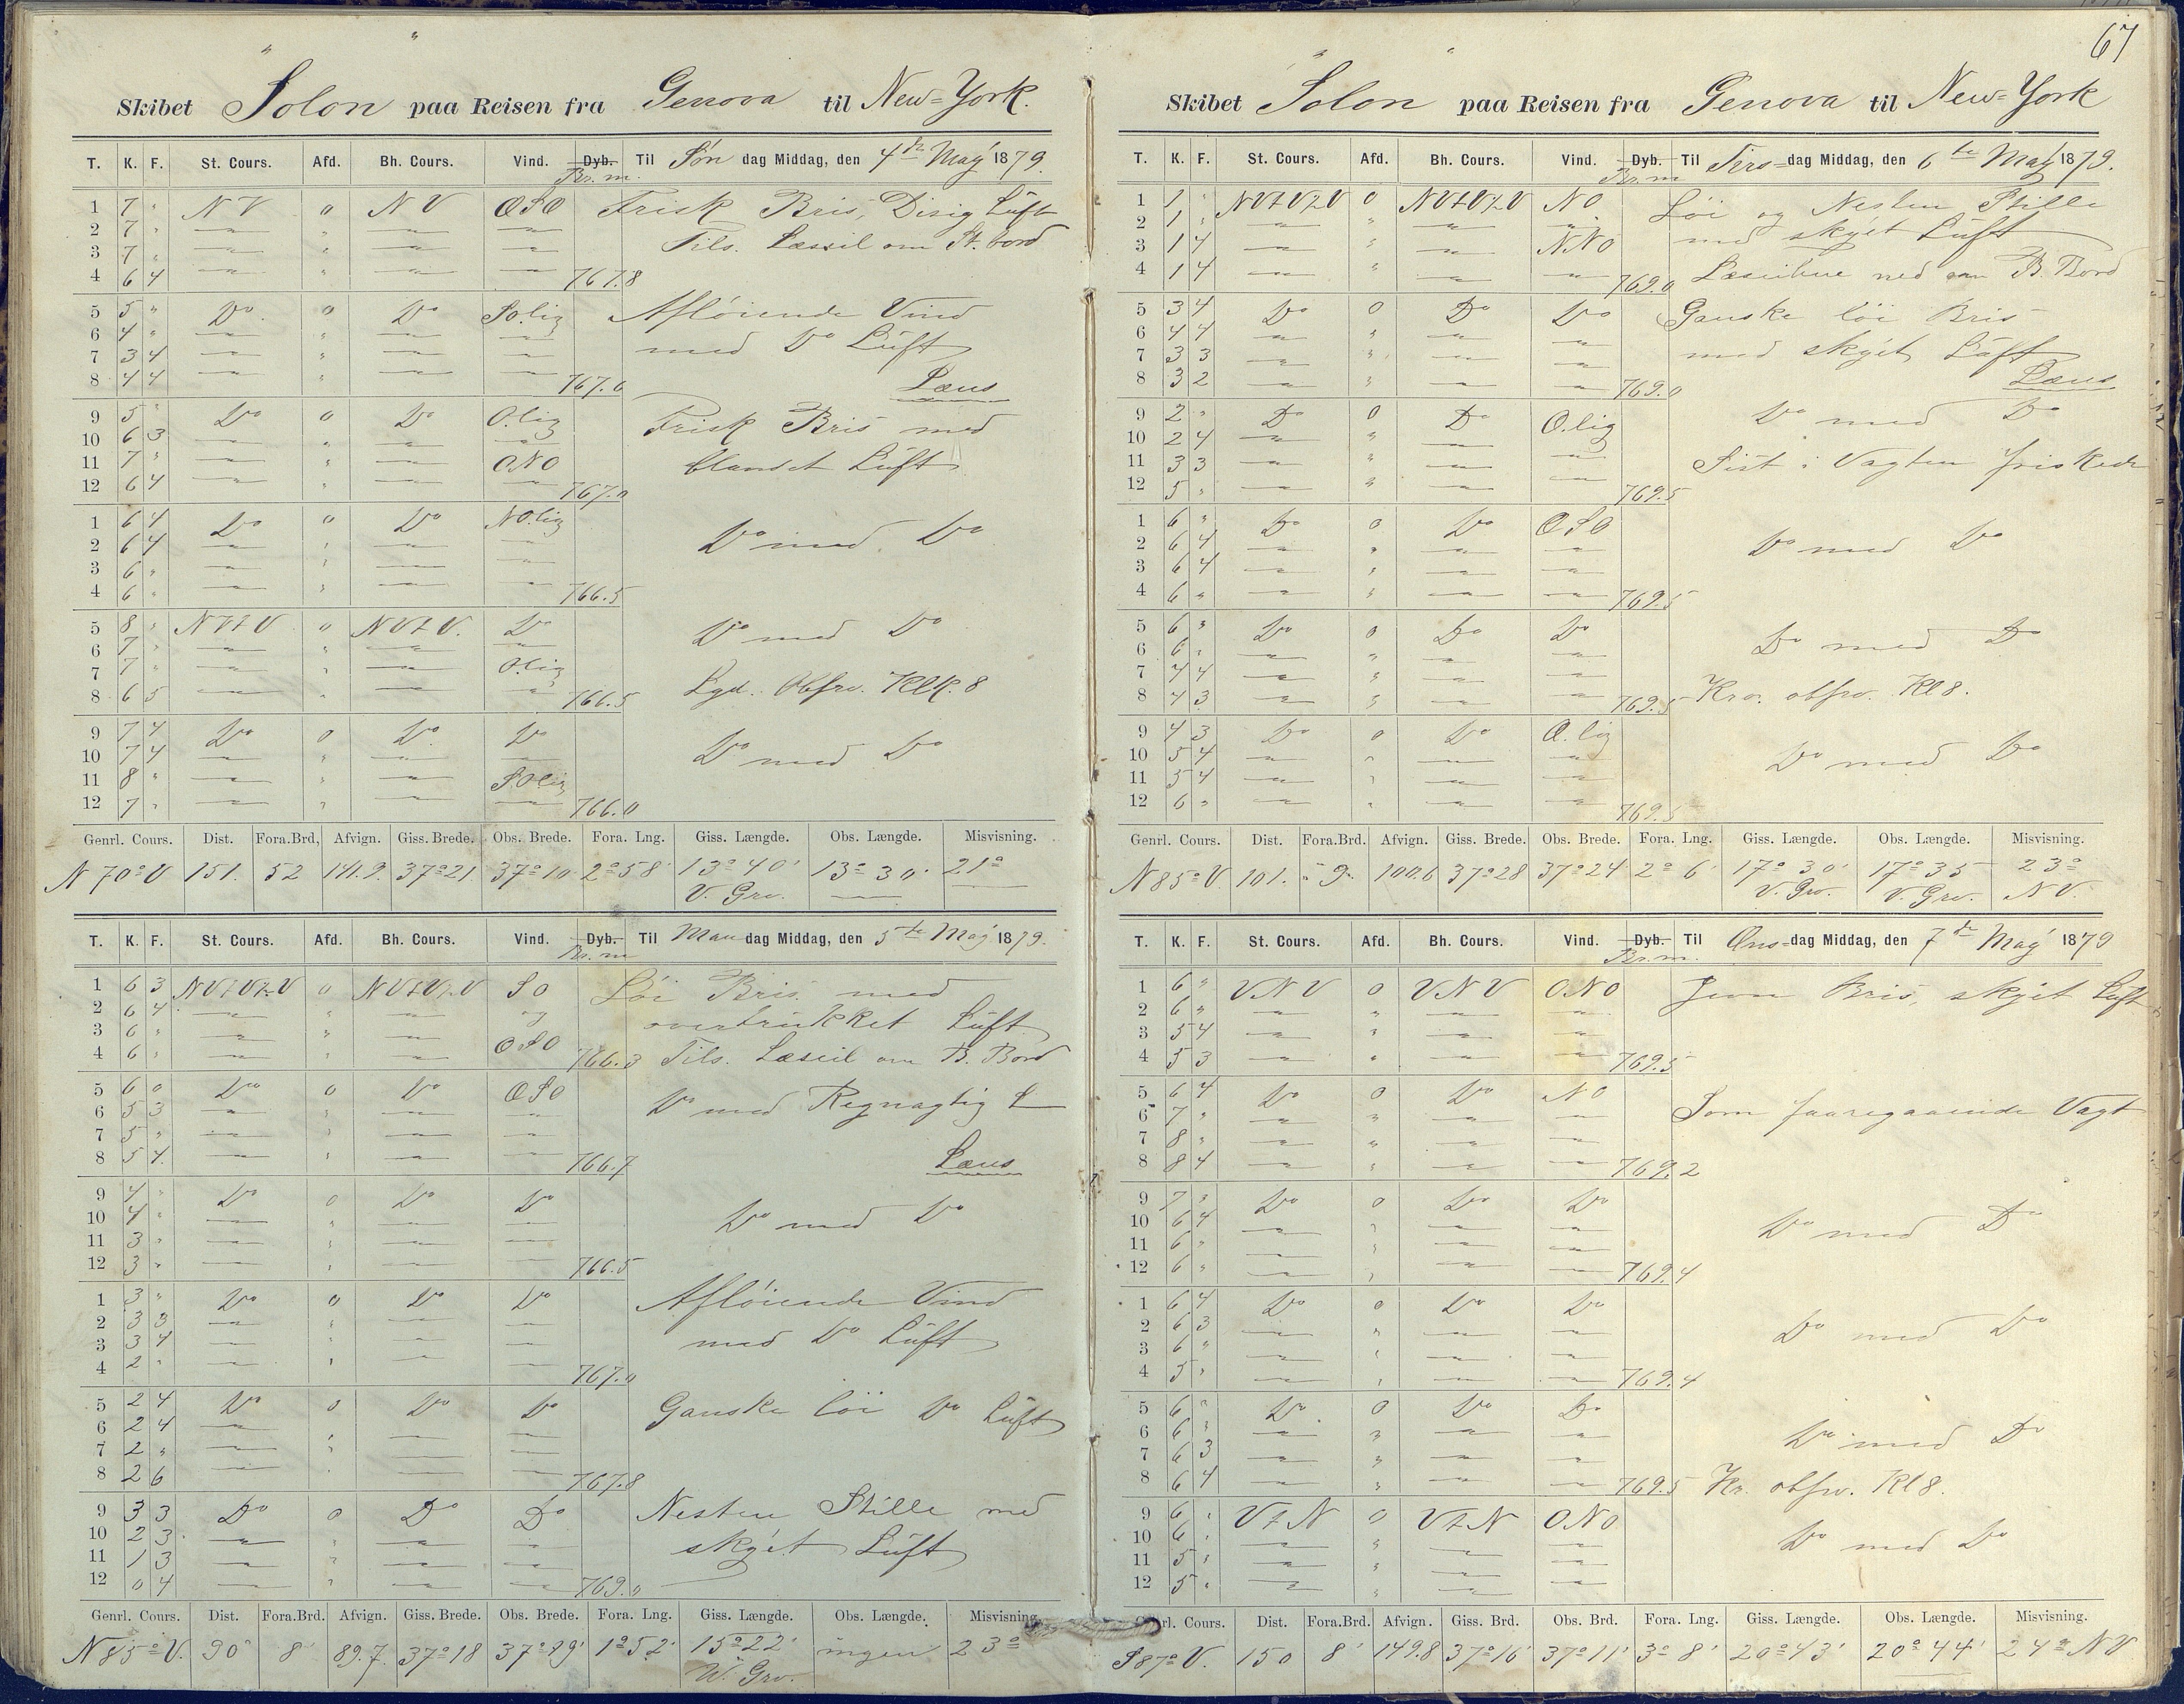 Skibet Solon paa Reisen fra Genova til New=York.
T. K. F. St. Cours. Afd. Bh. Cours. Vind. Dyb. Til Søn dag Middag, den 4de Maÿ 1879.
Br. m.
1 7 " NV 0 NV OSO Frisk Bris, Disig Luft
2 7 "
3 7 " Tils. Læsseil om St. bord
4 6 4 767.8
5 5 " Do 0 Do SO.lig Afløiende Vind
6 4 "
7 3 4 med Do Luft
8 4 4 767.6 Læns
9 5 " Do 0 Do O.lig Frisk Bris med
10 6 3
11 7 " ONO blandet Luft
12 6 4 767.0
1 6 4 Do 0 Do NO.lig
2 6 4 Do med Do
3 6 "
4 6 " 766.5
5 8 " NVtV 0 NVtV. Do Do med Do
6 7 "
7 7 " O.lig
8 6 5 766.5 Lgd. Obsrv. Klk. 8
9 7 4 Do 0 Do Do
10 7 4 Do med Do
11 8 " SOlig
12 7 " 766.0
Genrl. Cours. Dist. Fora.Brd, Afvign. Giss. Brede. Obs. Brede. Fora. Lng. Giss. Længde. Obs. Længde. Misvisning.
N 70° V 151. 52 141.9. 37°21. 37°10 2°58' 13°40' 13°30' 21°
V. Grv.
T. K. F. St. Cours. Afd. Bh. Cours. Vind. Dyb. Til Man dag Middag, den 5te Maÿ 1879.
Br. m
1 6 3 NVtV½V 0 NVtV½V SO Løi Bris med
2 6 4 og overtrukket Luft
3 6 "
4 6 " OSO 766.3 Tils. Læseil om B. Bord
5 6 0 Do 0 Do OSO
6 5 3 Do med Regnagtig L
7 5 "
8 5 4 766.7 Læns
9 4 " Do 0 Do Do
10 4 " Do med Do
11 3 "
12 3 " 766.5
1 3 " Do 0 Do Do Afløiende Vind
2 3 3
3 3 4 med Do Luft
4 2 " 767.0
5 2 4 Do 0 Do Do Ganske løi Do Luft
6 2 4
7 2 "
8 2 6 767.8
9 3 3 Do 0 Do Do Nesten Stille med
10 2 3
11 1 3 skÿet Luft
12 0 4 769.0
Genrl. Cours. Dist. Fora.Brd. Afvign. Giss. Brede. Obs. Brede. Fora. Lng. Giss. Længde. Obs. Længde. Misvisning
N 85° V. 90 8' 89.7. 37°18 37°19' 1°52' 15°22' ingen 23°
W. Grv.
67
Skibet Solon paa Reisen fra Genova til New=York
T. K. F. St. Cours. Afd. Bh. Cours. Vind. Dyb. Til Tirs=dag Middag, den 6te Maÿ 1879.
Br. m
1 1 " NVtV½V 0 NVtV½V NO Løi og Nesten Stille
2 1 " med skÿet Luft
3 1 4 NNO
4 1 4 769.0 Læseilene ned om B. Bord
5 3 4 Do 0 Do Do Ganske løi Bris
6 4 4
7 3 3 med skÿet Luft
8 3 2 769.0 Læns
9 2 " Do 0 Do O.lig Do med Do
10 2 4
11 3 3 Sist i Vagten friskede
12 5 " 769.5
1 6 " Do 0 Do OSO
2 6 4 Do med Do
3 6 4
4 6 " 769.5
5 6 " Do 0 Do Do Do med Do
6 6 "
7 4 4
8 4 3 769.5 Kro. obsrv. Kl 8.
9 4 3 Do 0 Do O.lig
10 5 4 Do med Do
11 5 4
12 6 " 769.5
Genrl. Cours. Dist. Fora.Brd. Afvign. Giss. Brede. Obs. Brede. Fora. Lng. Giss. Længde. Obs. Længde. Misvisning.
N 85° V. 101. 9. 100.6 37°28 37°24 2° 6' 17° 30' 17° 35 23°
V. Grv. V. Grv. NV.
T. K. F. St. Cours. Afd. Bh. Cours. Vind. Dyb. Til Ons=dag Middag, den 7de Maÿ 1879
Br. m.
1 6 " VNV 0 VNV ONO Jevn Bris, skÿet Luft
2 6 "
3 5 4
4 5 3 769.5
5 6 4 Do 0 Do NO
6 7 " Som foaregaaende Vagt
7 8 "
8 8 4 769.2
9 7 " Do 0 Do Do
10 6 4 Do med Do
11 6 "
12 6 " 769.4
1 6 4 Do 0 Do Do
2 6 3 Do med Do
3 6 "
4 5 " 769.4
5 6 " Do 0 Do Do
6 6 " Do med Do
7 6 3
8 6 4 769.5 Kr. obsrv. Kl 8.
9 6 " VtN 0 VtN ONO
10 6 " Do med Do
11 5 "
12 5 "
rl. Cours. Dist. Fora.Brd. Afvign. Giss. Brd. Obs. Brd. Fora. Lng. Giss. Længde. Obs. Længde. Misvisning.
S 87° V. 150 8' 149.8 37°16' 37°11' 3° 8' 20°43' 20°44' 24° NV